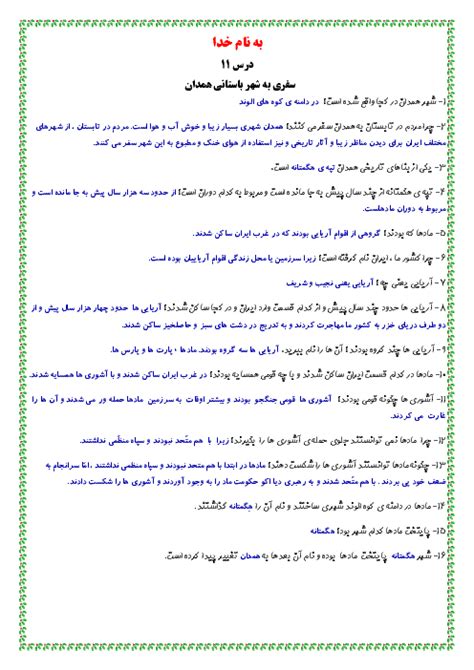 به نام خدا
درس ۱۱
سفری به شهر باستانی همدان
۱- شهر همدان در کجا واقع شده است؟ در دامنه ی کوه های الوند
۲- چرا مردم در تابستان به همدان سفر می کنند؟ همدان شهری بسیار زیبا و خوش آب و هوا است. مردم در تابستان ، از شهرهای
مختلف ایران برای دیدن مناظر زیبا و آثار تاریخی و نیز استفاده از هوای خنک و مطبوع به این شهر سفر می کنند.
۳- یکی از بناهای تاریخی همدان تپه ی هگمتانه است.
۴- تپه ی هگمتانه از چند سال پیش به جا مانده است و مربوط به کدام دوران است؟ از حدود سه هزار سال پیش به جا مانده است و
مربوط به دوران مادهاست.
۵- مادها که بودند؟ گروهی از اقوام آریایی بودند که در غرب ایران ساکن شدند.
۶- چرا کشور ما ، ایران نام گرفته است؟ زیرا سرزمین یا محل زندگی اقوام آریاییان بوده است.
۷- آریایی یعنی چه؟ آریایی یعنی نجیب و شریف
۸- آریایی ها حدود چند سال پیش و از کدام قسمت وارد ایران و در کجا ساکن شدند؟ آریایی ها حدود چهار هزار سال پیش و از
دو طرف دریای خزر به کشور ما مهاجرت کردند و به تدریج در دشت های سبز و حاصلخیز ساکن شدند.
۹- آریایی ها چند گروه بودند؟ آن ها را نام ببرید. آریایی ها سه گروه بودند. مادها ، پارت ها و پارس ها.
۱۰- مادها در کدام قسمت ایران ساکن شدند و با چه قومی همسایه بودند؟ در غرب ایران ساکن شدند و با آشوری ها همسایه شدند.
۱۱- آشوری ها چگونه قومی بودند؟ آشوری ها قومی جنگجو بودند و بیشتر اوقات به سرزمین مادها حمله ور می شدند و آن ها را
غارت می کردند.
۱۲- چرا مادها نمی توانستند جلوی حمله ی آشوری ها را بگیرند؟ زیرا با هم متّحد نبودند و سپاه منظّمی نداشتند.
۱۳- چگونه مادها توانستند آشوری ها را شکست دهند؟ مادها در ابتدا با هم متحد نبودند و سپاه منظمی نداشتند ، امّا سرانجام به
ضعف خود پی بردند . با هم متّحد شدند و به رهبری دیا اکو حکومت ماد را به وجود آوردند و آشوری ها را شکست دادند.
۱۴- مادها در دامنه ی کوه الوند شهری ساختند و نام آن را هگمتانه گذاشتند.
۱۵- پایتخت مادها کدام شهر بود؟ هگمتانه
۱۶- شهر هگمتانه پایتخت مادها بوده و نام آن بعدها به همدان تغییر پیدا کرده است.